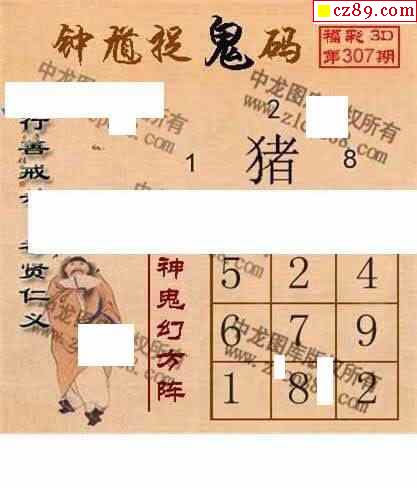 cz89.com
钟馗捉鬼码
福彩3D
第307期
中龙图库版权所有
2
1 猪 8
行善戒
贤仁义
神鬼幻方阵
5 2 4
6 7 9
1 8 2
中龙图库版权所有